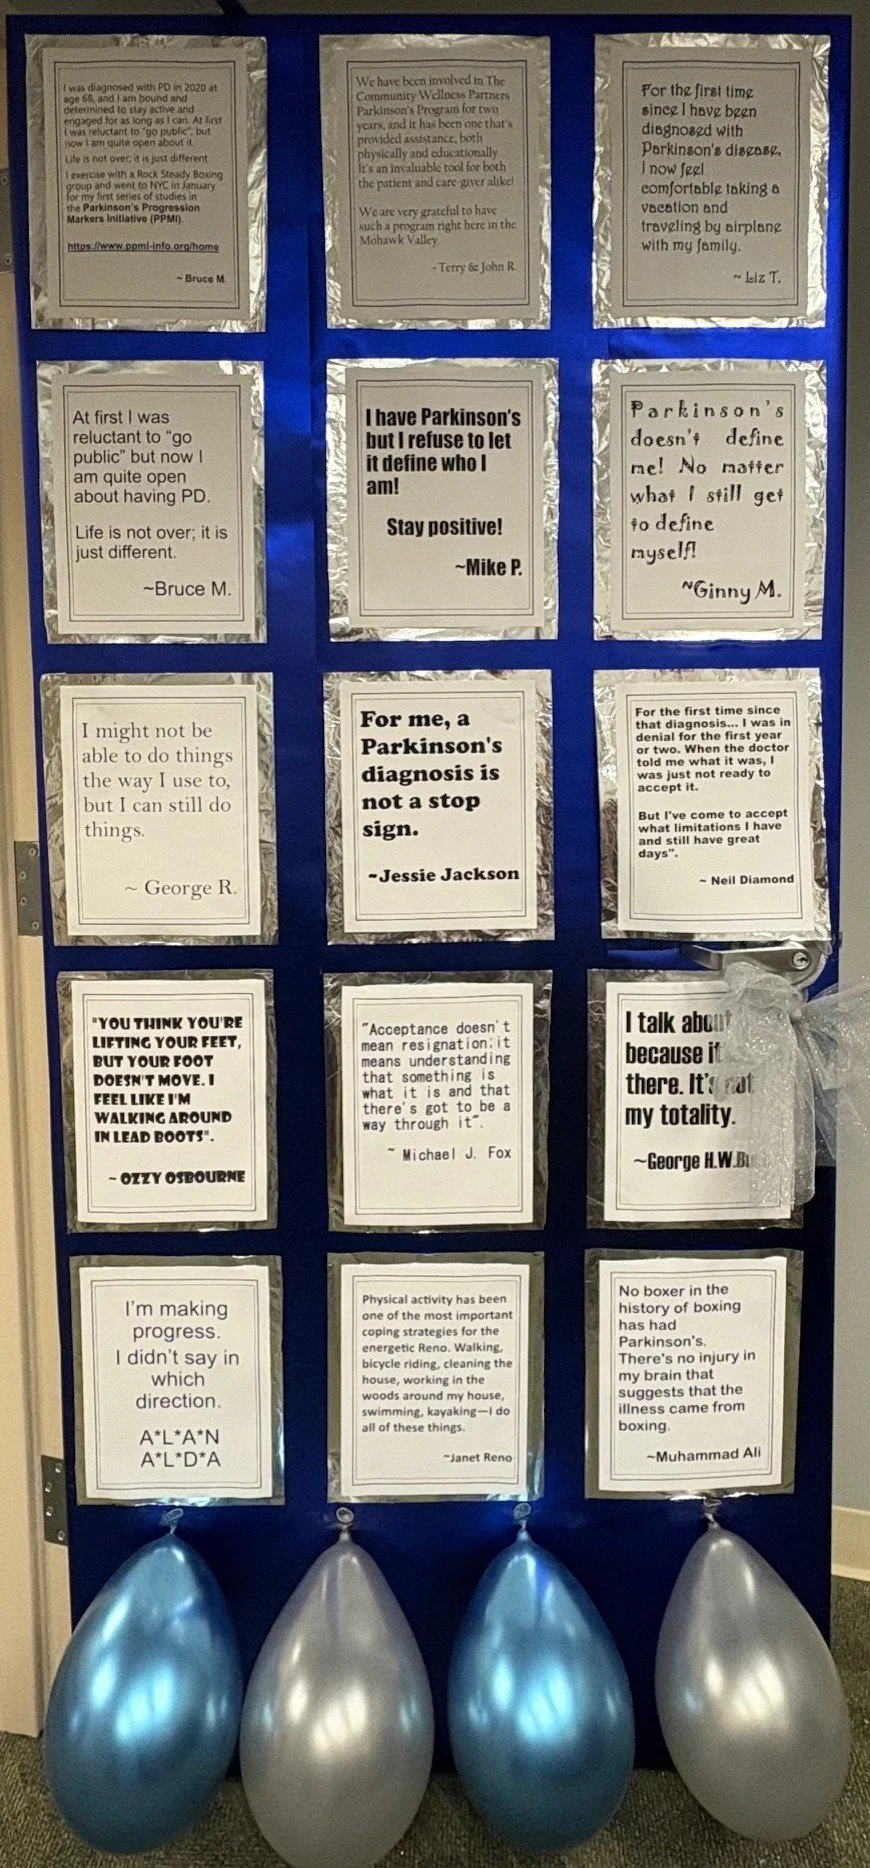 I was diagnosed with PD in 2020 at
age 66, and I am bound and
determined to stay active and
engaged for as long as I can. At first
I was reluctant to "go public", but
now I am quite open about it.
Life is not over; it is just different.
I exercise with a Rock Steady Boxing
group and went to NYC in January
for my first series of studies in
the Parkinson's Progression
Markers Initiative (PPMI).
https://www.ppmi-info.org/home
~ Bruce M.
We have been involved in The
Community Wellness Partners
Parkinson's Program for two
years, and it has been one that's
provided assistance, both
physically and educationally.
It's an invaluable tool for both
the patient and care-giver alike!
We are very grateful to have
such a program right here in the
Mohawk Valley.
- Terry & John R.
For the first time
since I have been
diagnosed with
Parkinson's disease,
I now feel
comfortable taking a
vacation and
traveling by airplane
with my family.
~ Liz T.
At first I was
reluctant to "go
public" but now I
am quite open
about having PD.
Life is not over; it is
just different.
~Bruce M.
I have Parkinson's
but I refuse to let
it define who I
am!
Stay positive!
~Mike P.
Parkinson's
doesn't define
me! No matter
what I still get
to define
myself!
~Ginny M.
I might not be
able to do things
the way I use to,
but I can still do
things.
~ George R.
For me, a
Parkinson's
diagnosis is
not a stop
sign.
~Jessie Jackson
For the first time since
that diagnosis... I was in
denial for the first year
or two. When the doctor
told me what it was, I
was just not ready to
accept it.
But I've come to accept
what limitations I have
and still have great
days".
~ Neil Diamond
"YOU THINK YOU'RE
LIFTING YOUR FEET,
BUT YOUR FOOT
DOESN'T MOVE. I
FEEL LIKE I'M
WALKING AROUND
IN LEAD BOOTS".
~ OZZY OSBOURNE
"Acceptance doesn't
mean resignation; it
means understanding
that something is
what it is and that
there's got to be a
way through it".
~ Michael J. Fox
I talk about
because it
there. It's not
my totality.
~George H.W.
I'm making
progress.
I didn't say in
which
direction.
A*L*A*N
A*L*D*A
Physical activity has been
one of the most important
coping strategies for the
energetic Reno. Walking,
bicycle riding, cleaning the
house, working in the
woods around my house,
swimming, kayaking—I do
all of these things.
~Janet Reno
No boxer in the
history of boxing
has had
Parkinson's.
There's no injury in
my brain that
suggests that the
illness came from
boxing.
~Muhammad Ali